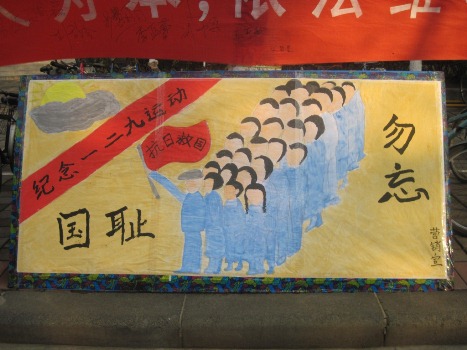 为本,依法维
纪念一二九运动
抗日救国
勿忘
国耻
营销室